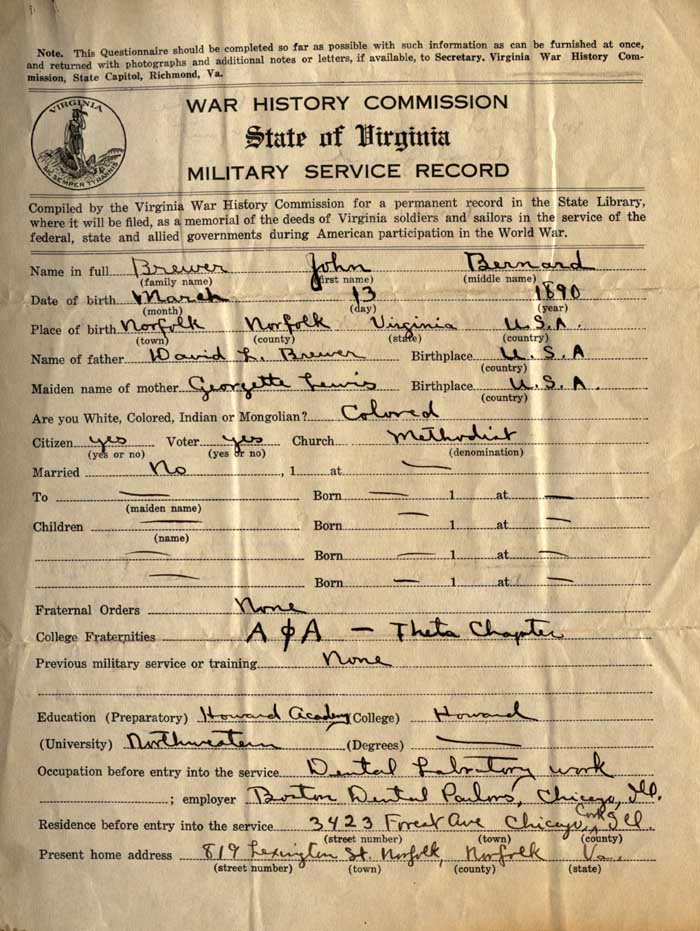 Note. This Questionnaire should be completed so far as possible with such information as can be furnished at once,
and returned with photographs and additional notes or letters, if available, to Secretary. Virginia War History Com-
mission, State Capitol, Richmond, Va.
VIRGINIA
SIC SEMPER TYRANNIS
WAR HISTORY COMMISSION
State of Virginia
MILITARY SERVICE RECORD
Compiled by the Virginia War History Commission for a permanent record in the State Library,
where it will be filed, as a memorial of the deeds of Virginia soldiers and sailors in the service of the
federal, state and allied governments during American participation in the World War.
Name in full Brewer John Bernard
(family name) (first name) (middle name)
Date of birth March 13 1890
(month) (day) (year)
Place of birth Norfolk Norfolk Virginia U.S.A.
(town) (county) (state) (country)
Name of father David L. Brewer Birthplace U.S.A
(country)
Maiden name of mother Georgette Lewis Birthplace U.S.A.
(country)
Are you White, Colored, Indian or Mongolian? Colored
Citizen yes Voter yes Church Methodist
(yes or no) (yes or no) (denomination)
Married No , 1 at —
To — Born — 1 at —
(maiden name)
Children — Born — 1 at —
(name)
— Born — 1 at —
— Born — 1 at —
Fraternal Orders None
College Fraternities A ϕ A — Theta Chapter
Previous military service or training None
Education (Preparatory) Howard Academy (College) Howard
(University) Northwestern (Degrees) —
Occupation before entry into the service Dental Labratory work
; employer Boston Dental Parlors, Chicago, Ill.
Residence before entry into the service 3423 Forest Ave Chicago, Cook Ill.
(street number) (town) (county)
Present home address 819 Lexington St. Norfolk, Norfolk Va.
(street number) (town) (county) (state)